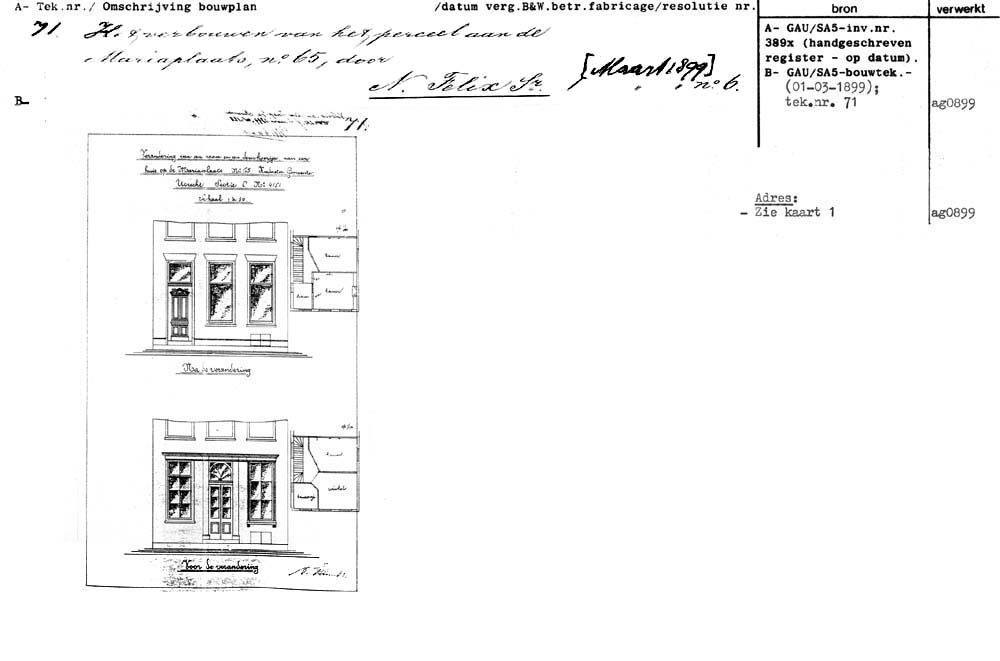 A- Tek.nr./ Omschrijving bouwplan /datum verg.B&W.betr.fabricage/resolutie nr. bron verwerkt
71. Het verbouwen van het perceel aan de
Mariaplaats, no 65, door
N. Felix Sr. [Maart 1899] " " no 6.
A- GAU/SA5-inv.nr.
389x (handgeschreven
register - op datum).
B- GAU/SA5-bouwtek.-
(01-03-1899);
tek.nr. 71 ag0899
B-
71.
Verandering van een raam en een deurkozijn, aan een
huis op de Mariaplaats No 65. Kadaster Gemeente
Utrecht Sectie C No 4151
Schaal 1 à 50
Adres:
- Zie kaart 1 ag0899
kamer
kamer
Na de verandering
winkel
Voor de verandering